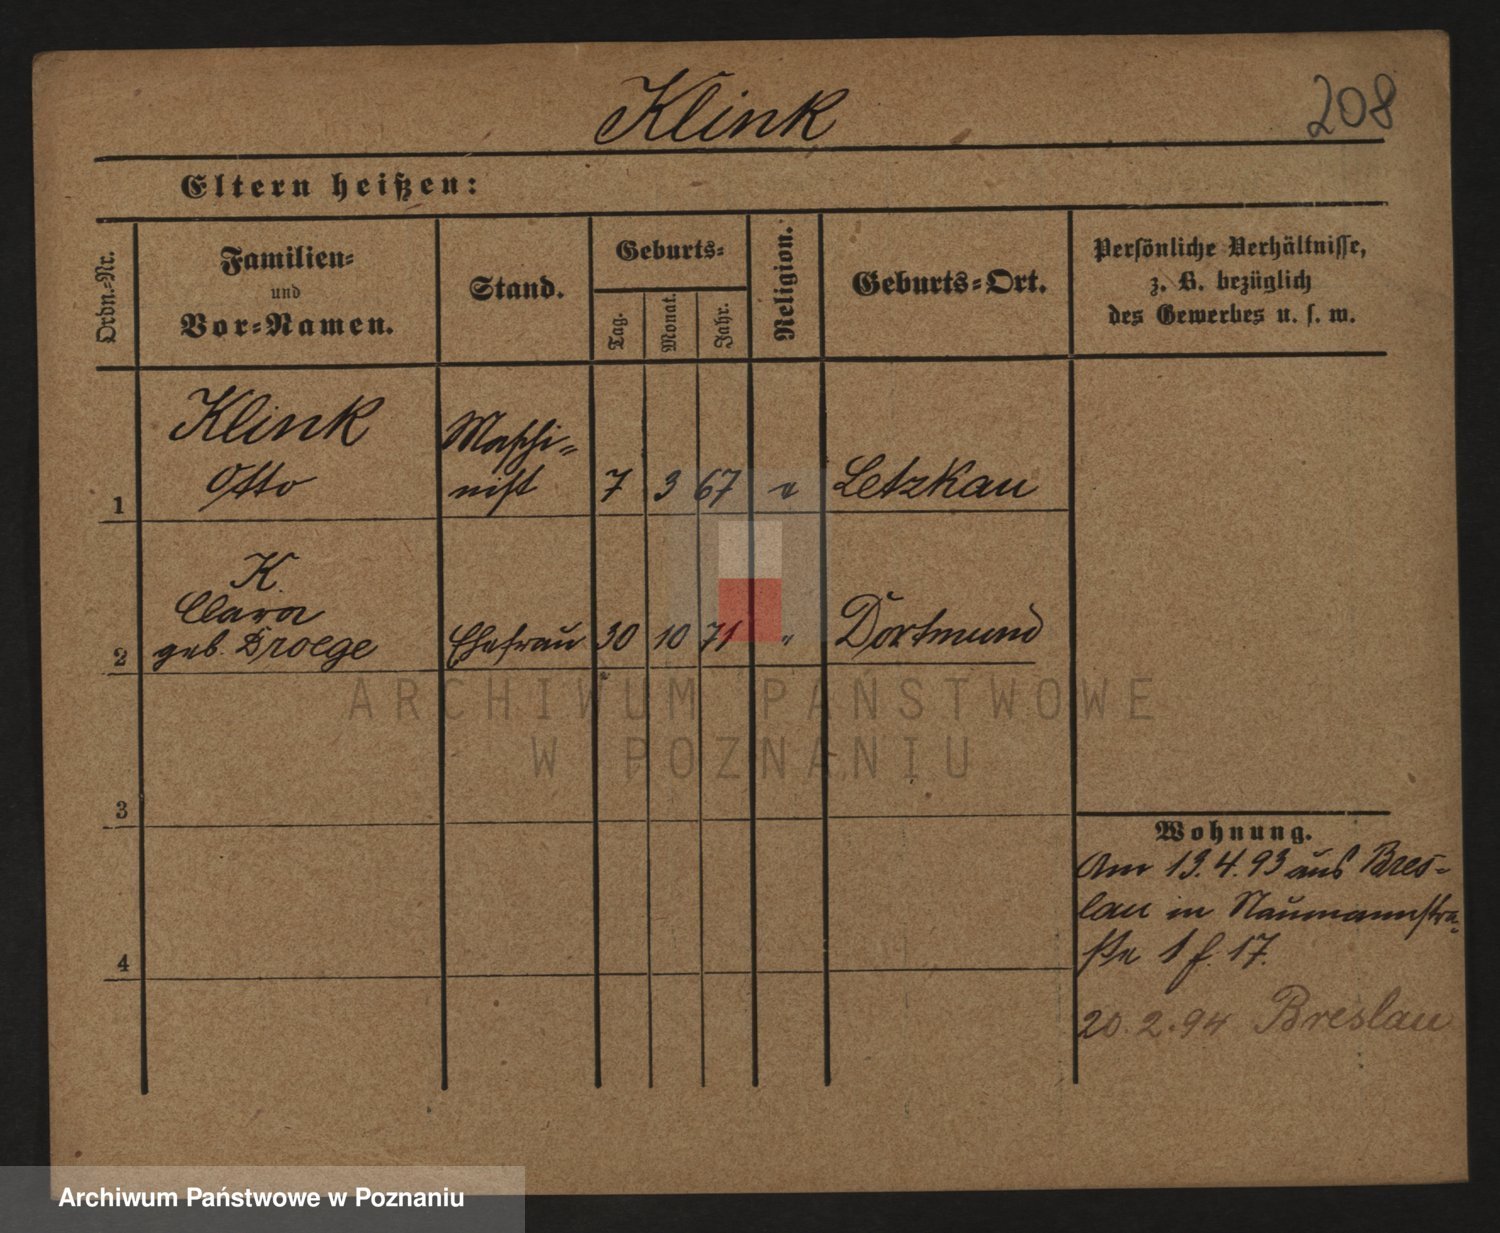 Klink
208
Eltern heißen:
Ordn.-Nr.
Familien-
und
Vor-Namen.
Stand.
Geburts-
Tag.
Monat.
Jahr.
Religion.
Geburts-Ort.
Persönliche Verhältnisse,
z. B. bezüglich
des Gewerbes u. s. w.
1
Klink
Otto
Maschi-
nist
7 3 67 Letzkau
2
K.
Clara
geb. Droege
Ehefrau 30 10 71 " Dortmund
3
4
Wohnung.
Am 13.4.93 aus Bres-
lau in Naumannstra-
ße 1 f. 17.
20.2.94 Breslau
ARCHIWUM PAŃSTWOWE
W POZNANIU
Archiwum Państwowe w Poznaniu